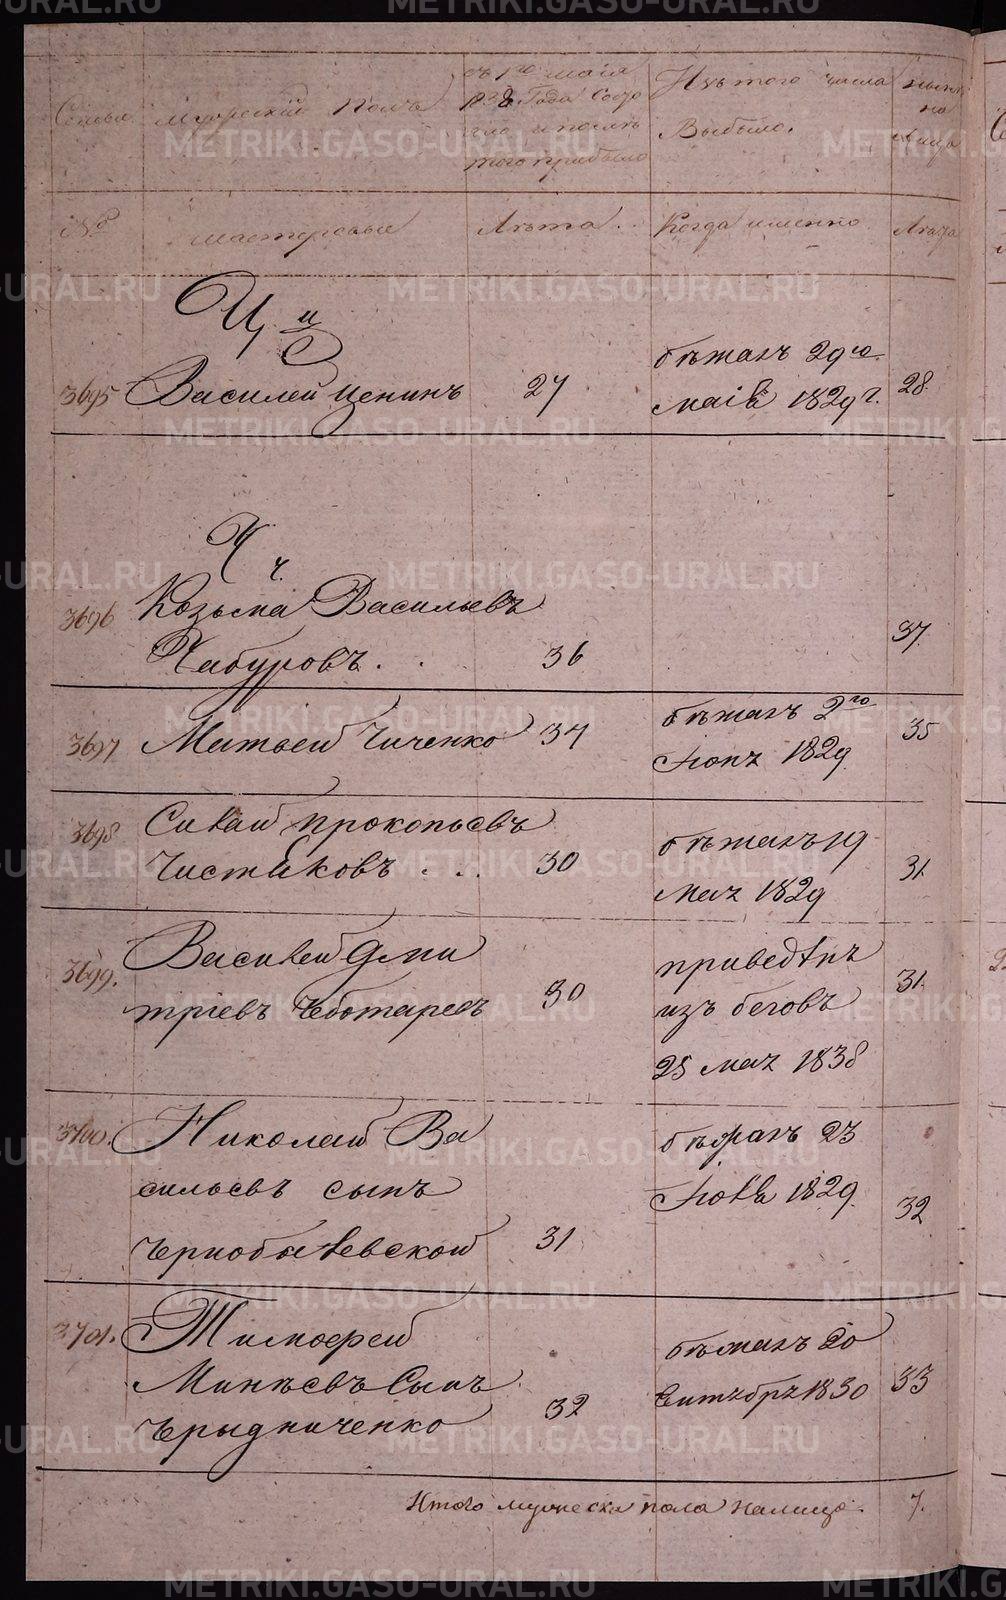 METRIKI.GASO-URAL.RU
Семьи
Мужеский Полъ
съ 1го маія
1828 Года Состо
яло и послѣ
того прибыло
Изъ того числа
Выбыло.
нынѣ
на
лицо
№
мастеровые
Лѣта.
Когда именно
Лѣта
Ц ц
3695 Василей Ценинъ 27
бѣжалъ 29го
маія 1829 г. 28.
Ч ч.
3696 Козьма Васильевъ
Чабуровъ. . 36 37.
3697 Матвей Чиченко 34
бѣжалъ 2го
Іюня 1829 35
3698 Силай Прокопьевъ
Чистяковъ . . . 30
бѣжалъ 19
мая 1829 31.
3699. Василей Дми
тріевъ Чеботаревъ 30
приведѣнъ
изъ беговъ
25 мая 1838 31.
3700. Николай Ва
сильевъ сынъ
Чернобылевской 31
бѣжалъ 23
Іюля 1829 32
3701. Тимофей
Минѣевъ Сынъ
Чрыдниченко 32
бѣжалъ 20
Сентября 1830 33
Итого мужеска пола налицо. 7.